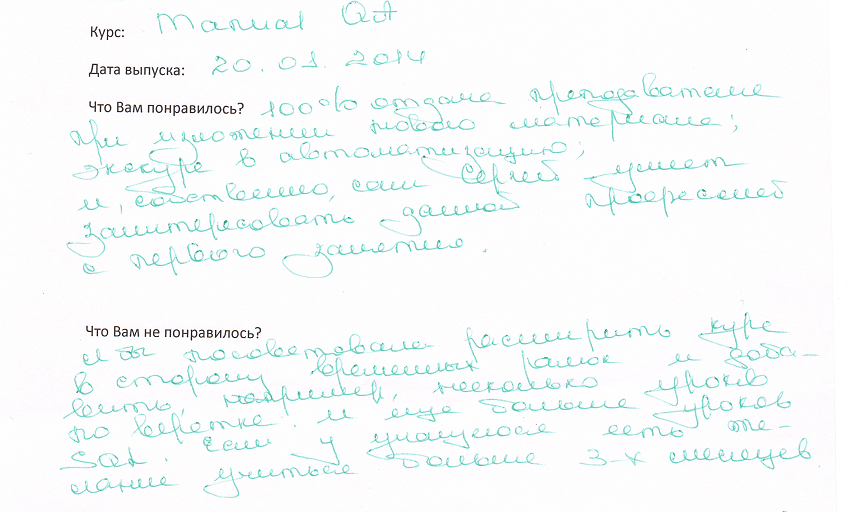 Курс: Manual QA
Дата выпуска: 20.01.2014
Что Вам понравилось? 100% отдача преподавателя
при изложении нового материала;
экскурс в автоматизацию;
и, собственно, сам Сергей умеет
заинтересовать данной профессией
с первого занятия.
Что Вам не понравилось?
Я бы посоветовала расширить курс
в сторону временных рамок и доба-
вить, например, несколько уроков
по верстке. и еще больше уроков
Sql. Если у учащихся есть же-
лание учиться больше 3-х месяцев